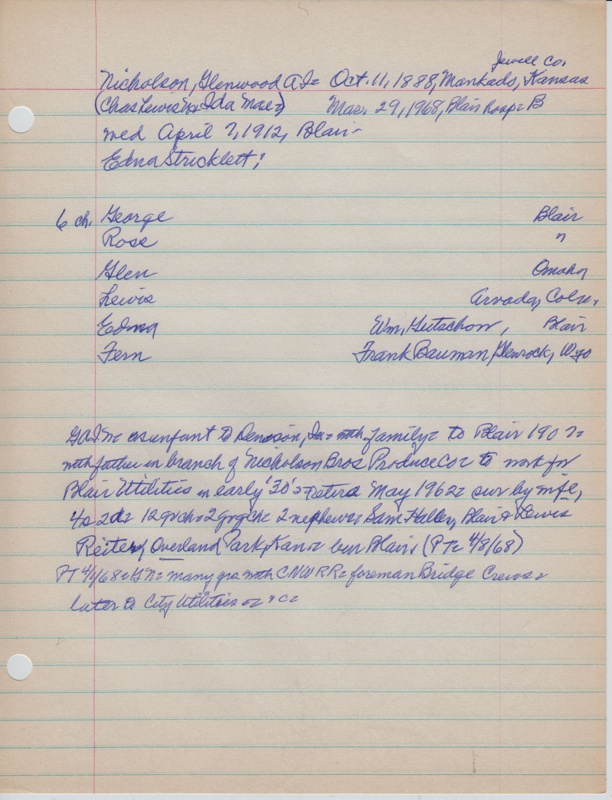 Jewell Co.
Nicholson, Glenwood A I= Oct. 11, 1888, Mankado, Kansas
(Chas Lewis N= Ida Mae=) Mar. 29, 1968, Blair Hosp= B
med April 7, 1912, Blair-
Edna Stricklett;
6 ch. George Blair
Rose "
Glen Omaha
Lewis Arvada, Colo.
Edma Wm, Gutschow, Blair
Fern Frank Bauman/Glenrock, Wyo
GAIN= as infant to Denison, Ia= with family= to Blair 190
with father in branch of Nicholson Bros Produce Co= to work for
Blair Utilities in early '30's= retired May 1962= sur by wife,
4s 2d= 12 grch= 2 grgrch= 2 nephews= Sam Halley, Blair & Lewis
Reiter, Overland Park, Kan= bur Blair, (PT= 4/8/68)
PT 4/4/68= GN= many yrs with CNWRR= foreman Bridge Crews=
later to City Utilities